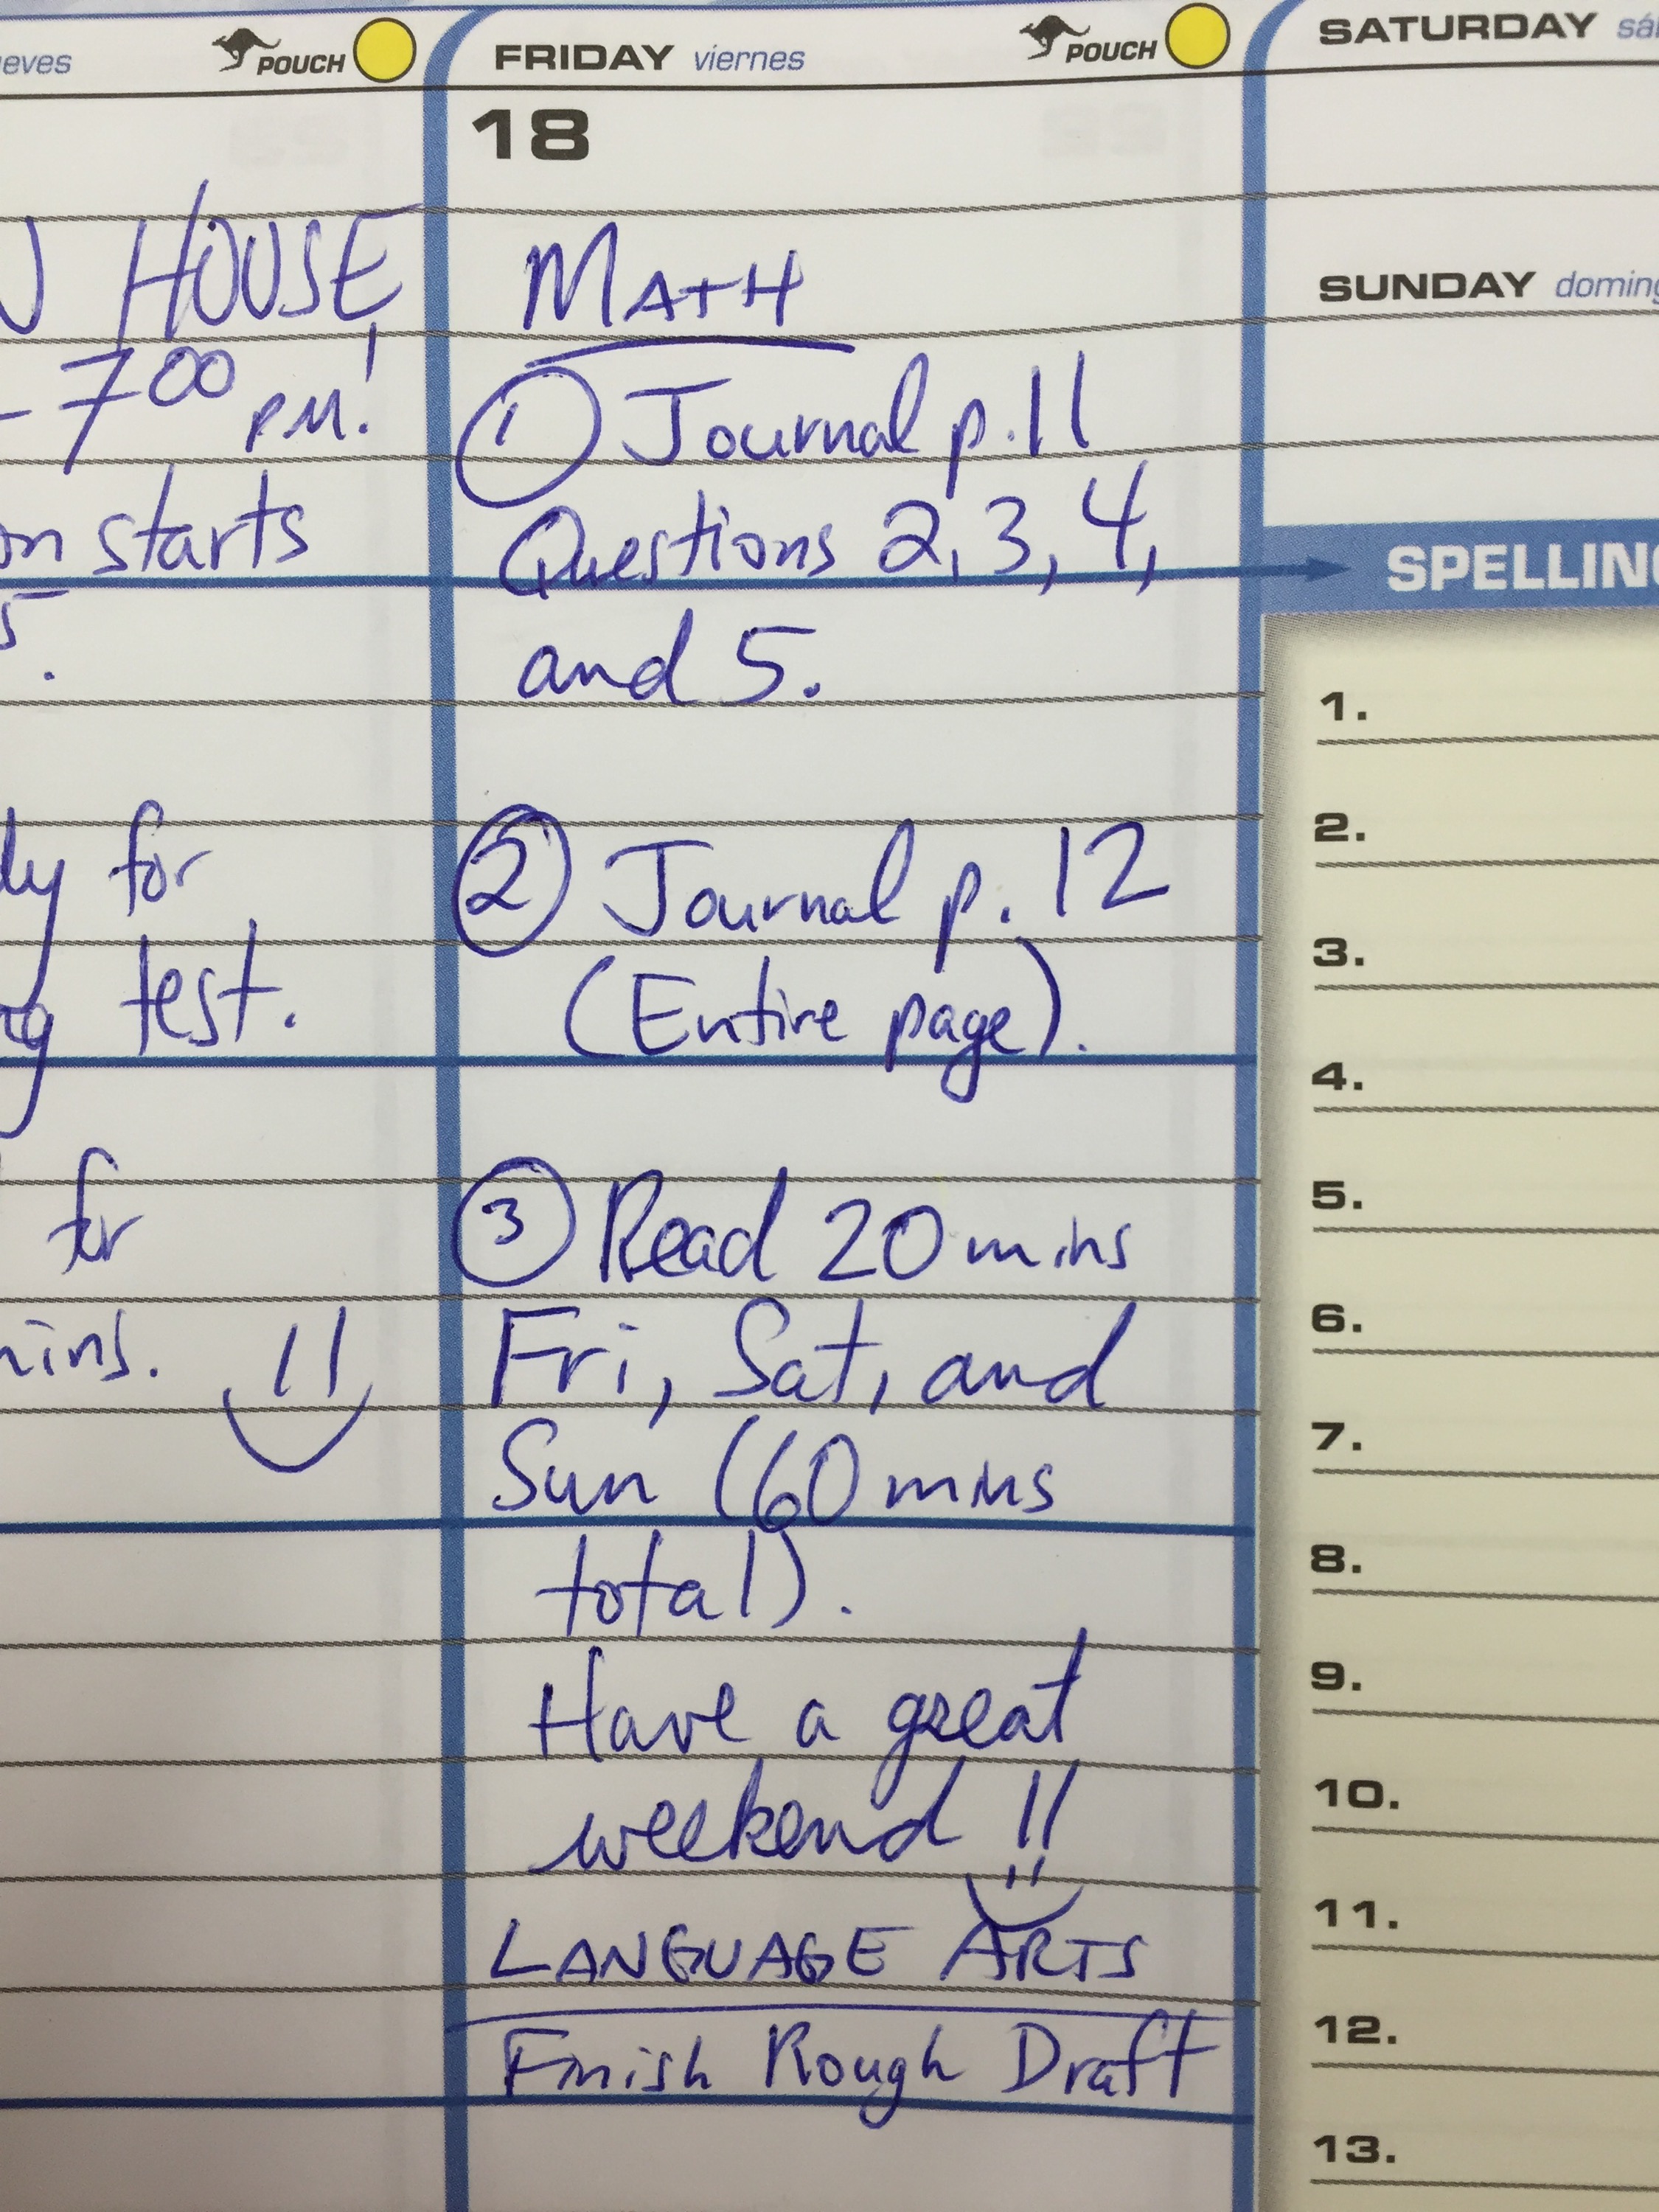 eves POUCH
HOUSE
- 7 00 PM!
on starts
5.
for
test.
for
mins.
FRIDAY viernes POUCH
18
MATH
1 Journal p. 11
Questions 2, 3, 4,
and 5.
2 Journal p. 12
(Entire page).
3 Read 20 mins
Fri, Sat, and
Sun (60 mins
total).
Have a great
weekend !!
LANGUAGE ARTS
Finish Rough Draft
SATURDAY sá
SUNDAY doming
SPELLING
1.
2.
3.
4.
5.
6.
7.
8.
9.
10.
11.
12.
13.